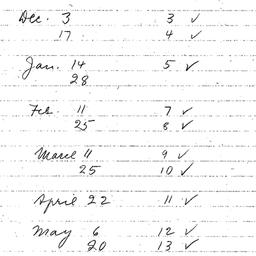 Dec. 3 3 ✓
17 4 ✓
Jan. 14 5 ✓
28
Feb. 11 7 ✓
25 8 ✓
March 11 9 ✓
25 10 ✓
April 22 11 ✓
May 6 12 ✓
20 13 ✓